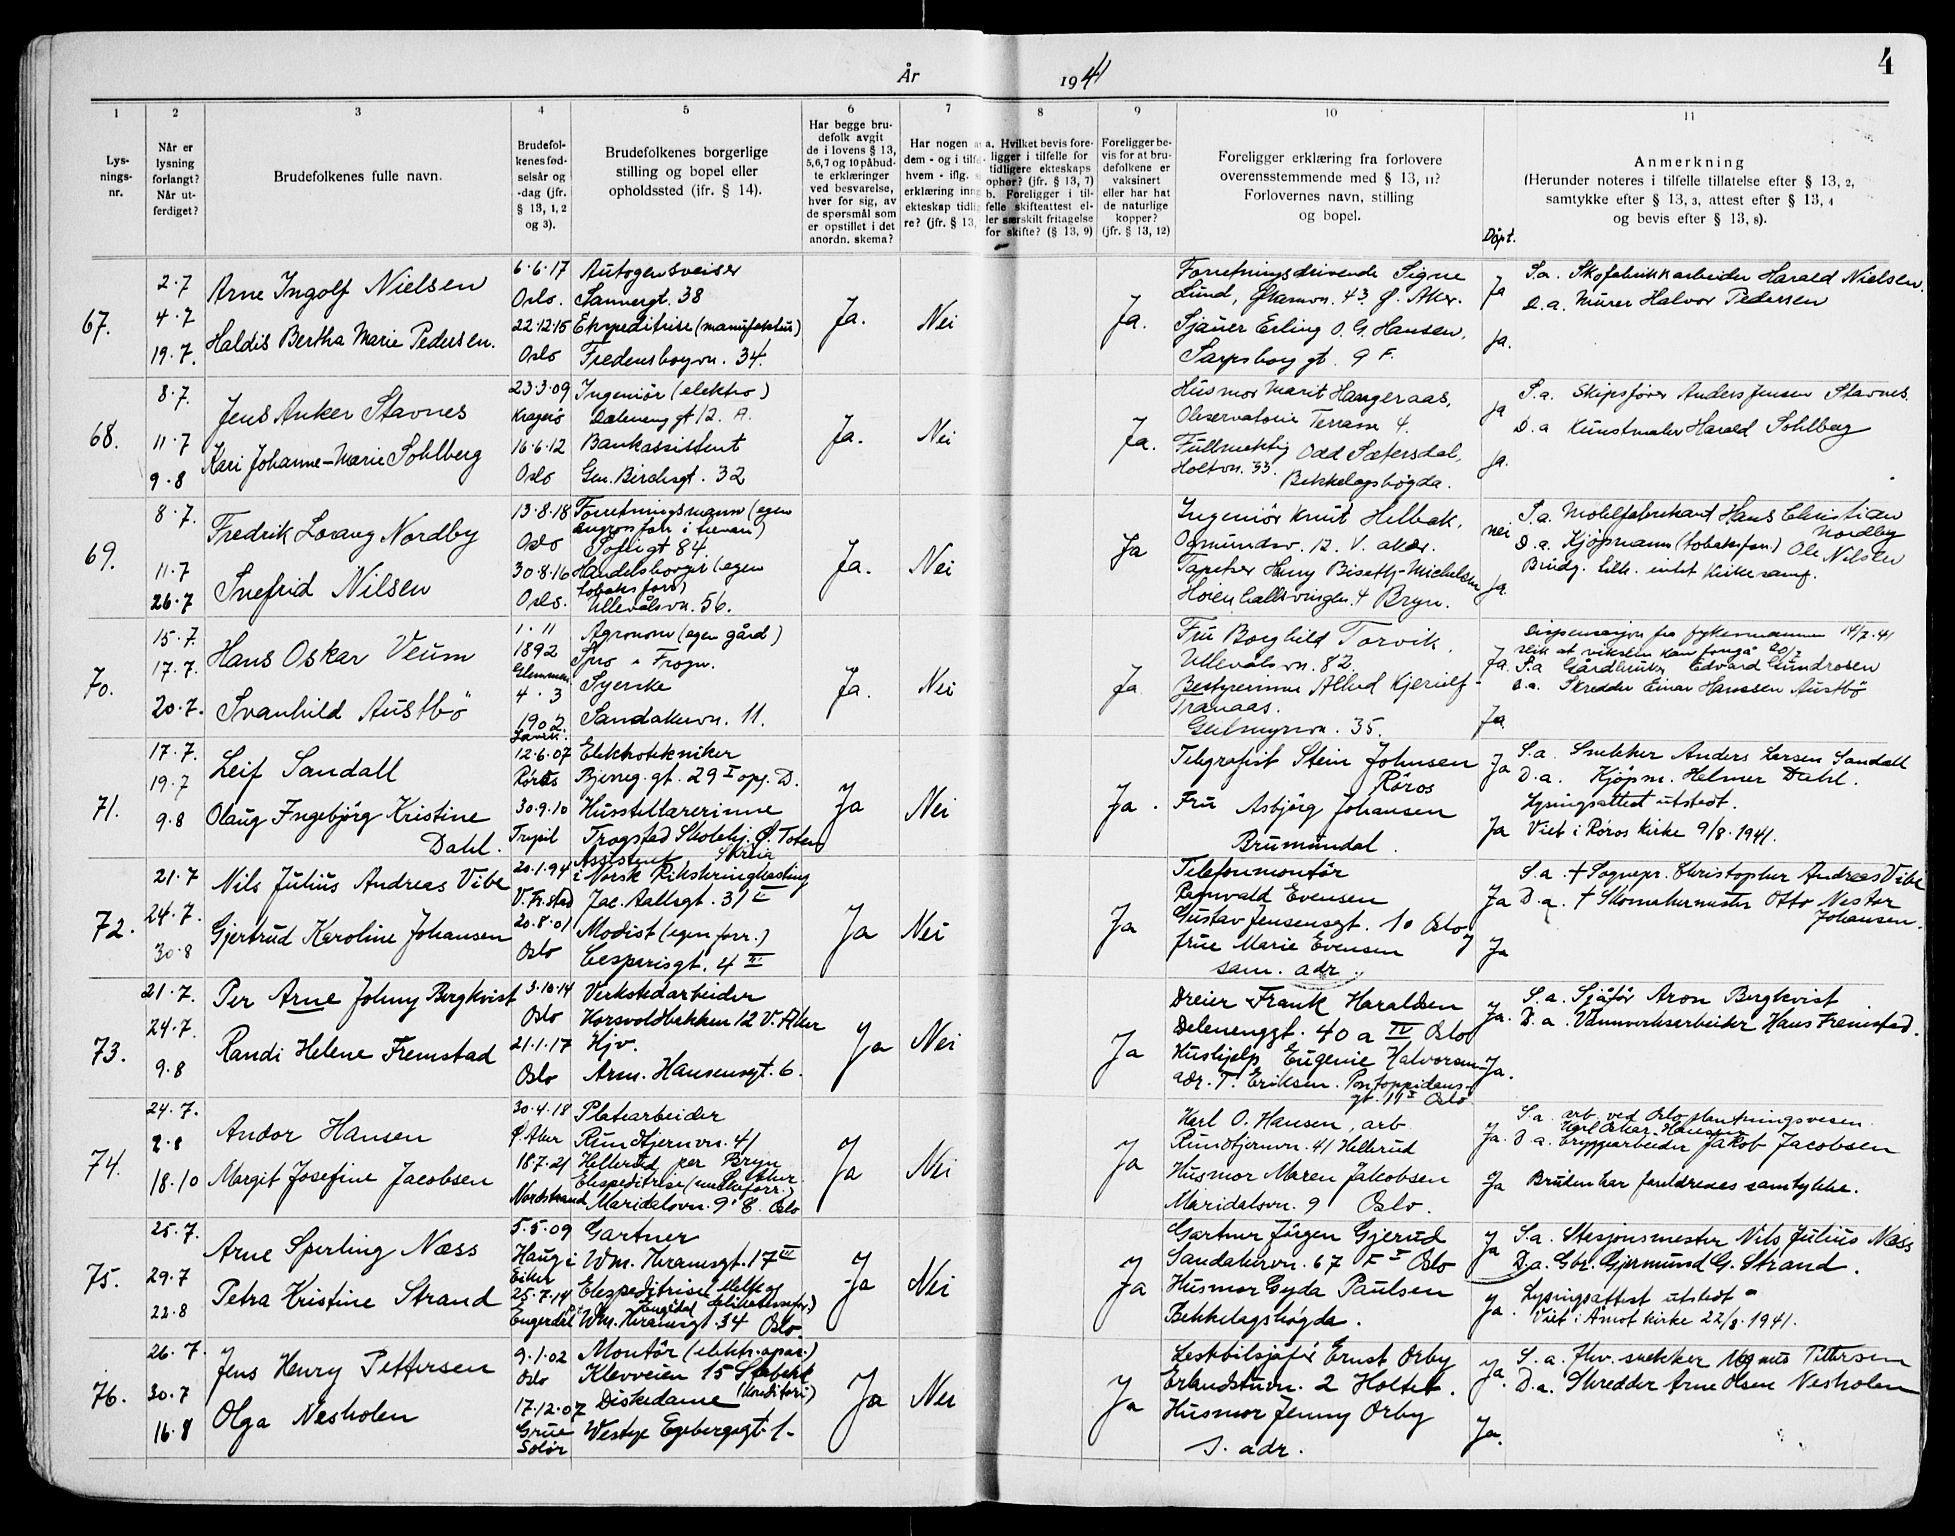 År 1941
4
1 2 3 4 5 6 7 8 9 10 11
Lys-
nings-
nr.
Når er
lysning
forlangt?
Når ut-
ferdiget?
Brudefolkenes fulle navn.
Brudefol-
kenes fød-
selsår og
-dag (jfr.
§ 13, 1, 2
og 3).
Brudefolkenes borgerlige
stilling og bopel eller
opholdssted (ifr. § 14).
Har begge bru-
defolk avgitt
de i lovens § 13,
5,6,7 og 10 påbud-
te erklæringer
ved besvarelse,
hver for sig, av
de spørsmål som
er opstillet i det
anordn. skema?
Har nogen a
dem - og i tilf
hvem - iflg. s
erklæring inng
ekteskap tidli
re? (jfr. § 13,
a. Hvilket bevis fore-
ligger i tilfelle for
tidligere ekteskaps
ophør? (jfr. § 13, 7)
b. Foreligger i til-
felle skifteattest el-
ler særskilt fritagelse
for skifte? (§ 13, 9)
Foreligger be-
vis for at bru-
defolkene er
vaksinert
eller har hat
de naturlige
kopper?
(jfr. § 13, 12)
Foreligger erklæring fra forlovere
overensstemmende med § 13, 11?
Forlovernes navn, stilling
og bopel.
Anmerkning
(Herunder noteres i tilfelle tillatelse efter § 13, 2,
samtykke efter § 13, 3, attest efter § 13, 4
og bevis efter § 13, 8).
Döpt.
67.
2.7
4.7
19.7.
Arne Ingolf Nielsen
Haldis Bertha Marie Pedersen.
6.6.17
Oslo.
22.12.15
Oslo
Autogensveiser
Sannergt. 38
Ekspeditrise (manufaktur)
Fredensborgvn. 34.
Ja.
Nei
Ja.
Forretningsdrivende Signe
Lund, 43. Ø. Aker.
Sjauer Erling O. G. Hansen,
Sarpsborg gt. 9 F.
Ja
Ja.
S.a. Skofabrikkarbeider Harald Nielsen.
D.a. Murer Halvor Pedersen
68.
8.7.
11.7
9.8
Jens Anker Stavnes
Kari Johanne-Marie Sohlberg
23.3.09
Kragerø
16.6.12
Oslo
Ingeniør (elektro)
Dæleneng gt 12. A.
Bankassistent
Gen. Birchsgt. 32
Ja.
Nei
Ja.
Husmor Marit Haugeraas,
Observatorie Terrasse 4.
Fullmektig Odd Sætersdal,
Holtvn. 33. Bekkelagshøgda.
Ja
Ja.
S.a. Skipsfører Anders Jensen Stavnes.
D.a Kunstmaler Harald Sohlberg
69.
8.7.
11.7
26.7
Fredrik Lorang Nordby
Snefrid Nilsen
13.8.18
Oslo
30.8.16
Oslo.
Forretningsmann (egen
engrosforr. i trevarer)
Sofiegt 84.
Handelsborger (egen
tobaksforr.)
Ullevålsvn. 56.
Ja.
Nei
Ja
Ingeniør Knut Helbak,
12. V. aker.
Tapetser Henry Biseth-Michelsen
4 Bryn.
nei
Ja.
S.a. Møbelfabrikant Hans Christian
Nordby
D.a. Kjøpmann (tobaksforr.) Ole Nilsen
Brudg. tilh. intet kirkesamf.
70.
15.7.
17.7.
20.7.
Hans Oskar Veum
Svanhild Austbö
1.11
1892
Glemmen
4.3
1902
Agronom (egen gård)
Spro, Frogn.
Syerske
Sandakervn. 11.
Ja.
Nei
Ja
Fru Borghild Torvik,
Ullevålsvn. 82.
Bestyrerinne Kjerulf-
Tranaas.
Geitmyrsvn. 35.
Ja.
Ja.
Dispensasjon fra fylkesmannen 14/7.41
slik at vikslen kan foregå 20/7
S.a Gårdbruker Edvard Gundrosen
D.a. Skredder Einar Hanssen Austbö
71.
17.7.
19.7
9.8
Leif Sandall
Olaug Ingebjörg Kristine
Dahl.
12.6.07
Røros
30.9.10
Trysil
Elektrotekniker
Bjerreg. gt. 29 I opg. D.
Husstellærerinne
Trogstad Skolehj. Ø. Toten
Skreia
Ja
Nei
Ja.
Telegrafist Stein Johnsen
Röros
Fru Asbjörg Johansen
Brumunddal.
Ja
Ja
S.a. Snekker Anders Larsen Sandall
D.a. Kjöpm. Helmer Dahl.
Lysningsattest utstedt.
Viet i Røros kirke 9/8.1941.
72.
21.7
24.7.
30.8
Nils Julius Andreas Vibe
Gjertrud Karoline Johansen
20.1.94
V. Fr.stad
20.8.01
Oslo
Assistent
i Norsk Rikskringkasting
Jac. Aallsgt. 31 II
Modist (egen forr.)
Eesperisgt. 4 III
Ja
Nei
Ja
Telefonmontör
Ragnvald Evensen
Gustav Jensensgt. 10 Oslo
frue Marie Evensen
sam. adr.
Ja
Ja
S.a. † Sognepr. Christopher Andreas Vibe
D.a. † Skomakermester Otto Nestor
Johansen.
73.
21.7.
24.7.
9.8
Per Arne Johny Bergkvist
Randi Helene Fremstad
3.10.14
Oslo
21.1.17
Oslo
Verkstedarbeider
Korsvoldbakken 12 V. Aker
Hjv.
Arm. Hansensgt. 6.
Ja
Nei
Ja
Dreier Frank Haralden
Delenenggt. 40 a IV Oslo
Hushjelp Eugenie Halvorsen
adr. T. Eriksen. Pontoppidans-
gt. 11 I Oslo
Ja.
Ja.
S.a. Sjåför Aron Bergkvist
D.a. Vannverksarbeider Hans Fremstad.
74.
24.7.
2.8
18.10
Andor Hansen
Margit Josefine Jacobsen
30.4.18
Ø. Aker
18.7.21
Nordstrand
Platearbeider
Rundtjernvn. 41
Hellerud per Bryn
Ø. Aker
Ekspeditrise (melkeforr.)
Maridalsvn. 9 C. Oslo
Ja
Nei
Ja
Karl O. Hansen, arb.
Rundtjernvn. 41 Hellerud
Husmor Maren Jakobsen
Maridalsvn. 9 Oslo.
Ja.
Ja
S.a. arb. ved Oslo Plantningsvesen
Karl Oskar Hansen
D.a. Bryggearbeider Jakob Jacobsen
Bruden har foreldrenes samtykke.
75.
25.7.
29.7
22.8
Arne Sperling Næss
Petra Kristine Strand
5.5.09
Haug i
Eiker
25.7.14
Engerdal
Gartner
Wm. Thranesgt. 17 III
Ekspeditrise (Melk og
delikatesseforr.)
Wm. Thranesgt. 34 Oslo.
Ja
Nei
Ja
Gartner Jörgen Gjerud
Sandakervn. 67 F I Oslo
Husmor Gyda Paulsen
Bekkelagshøgda.
Ja
Ja.
S.a. Stasjonsmester Nils Julius Næss
D.a. Gbr. Gjermund G. Strand.
Lysningsattest utstedt
Viet i Åmot kirke 22/8.1941.
76.
26.7.
30.7
16.8
Jens Henry Pettersen
Olga Nesholen
9.1.02
Oslo
17.12.07
Grue
Solør
Montör (elektr. apar.)
Klevveien 15 Stabekk
Diskedame (konditori)
Westye Egebergsgt. 1-
Ja
Nei
Ja
Lastebilsjåfør Ernst Orby
Erlandstuvn. 2 Holtet.
Husmor Jenny Orby
s. adr.
Ja.
Ja.
S.a. fhv. snekker Magnus Pettersen
D.a. Skredder Arne Olsen Nesholen